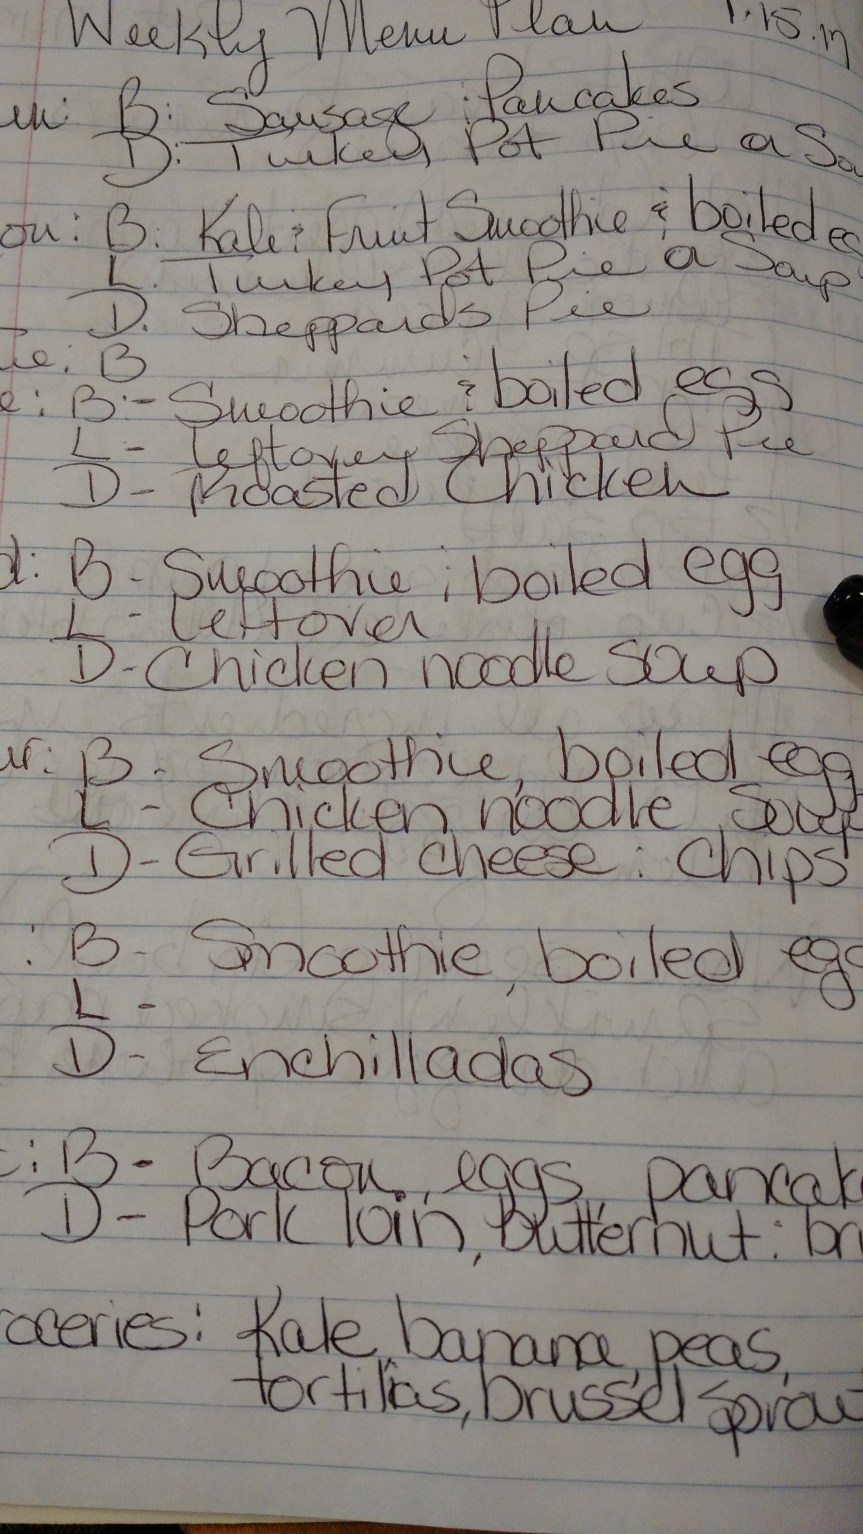 Weekly Menu Plan 1.15.17
un: B: Sausage : Pancakes
D: Turkey Pot Pie a So
on: B: Kale : Fruit Smoothie : boiled eg
L. Turkey Pot Pie a Soup
D. Sheppards Pie
ue: B
e: B:- Smoothie : boiled egg
L - leftover Sheppard Pie
D- Roasted Chicken
d: B - Smoothie ; boiled egg
L - leftover
D- Chicken noodle soup
ur: B - Smoothie, boiled egg
L - Chicken noodle Soup
D- Grilled cheese : chips
: B- Smoothie, boiled egg
L -
D- Enchilladas
: B- Bacon, eggs, pancak
D- Pork loin, butternut : bru
roceries: Kale, banana, peas,
tortillas, brussel sprou